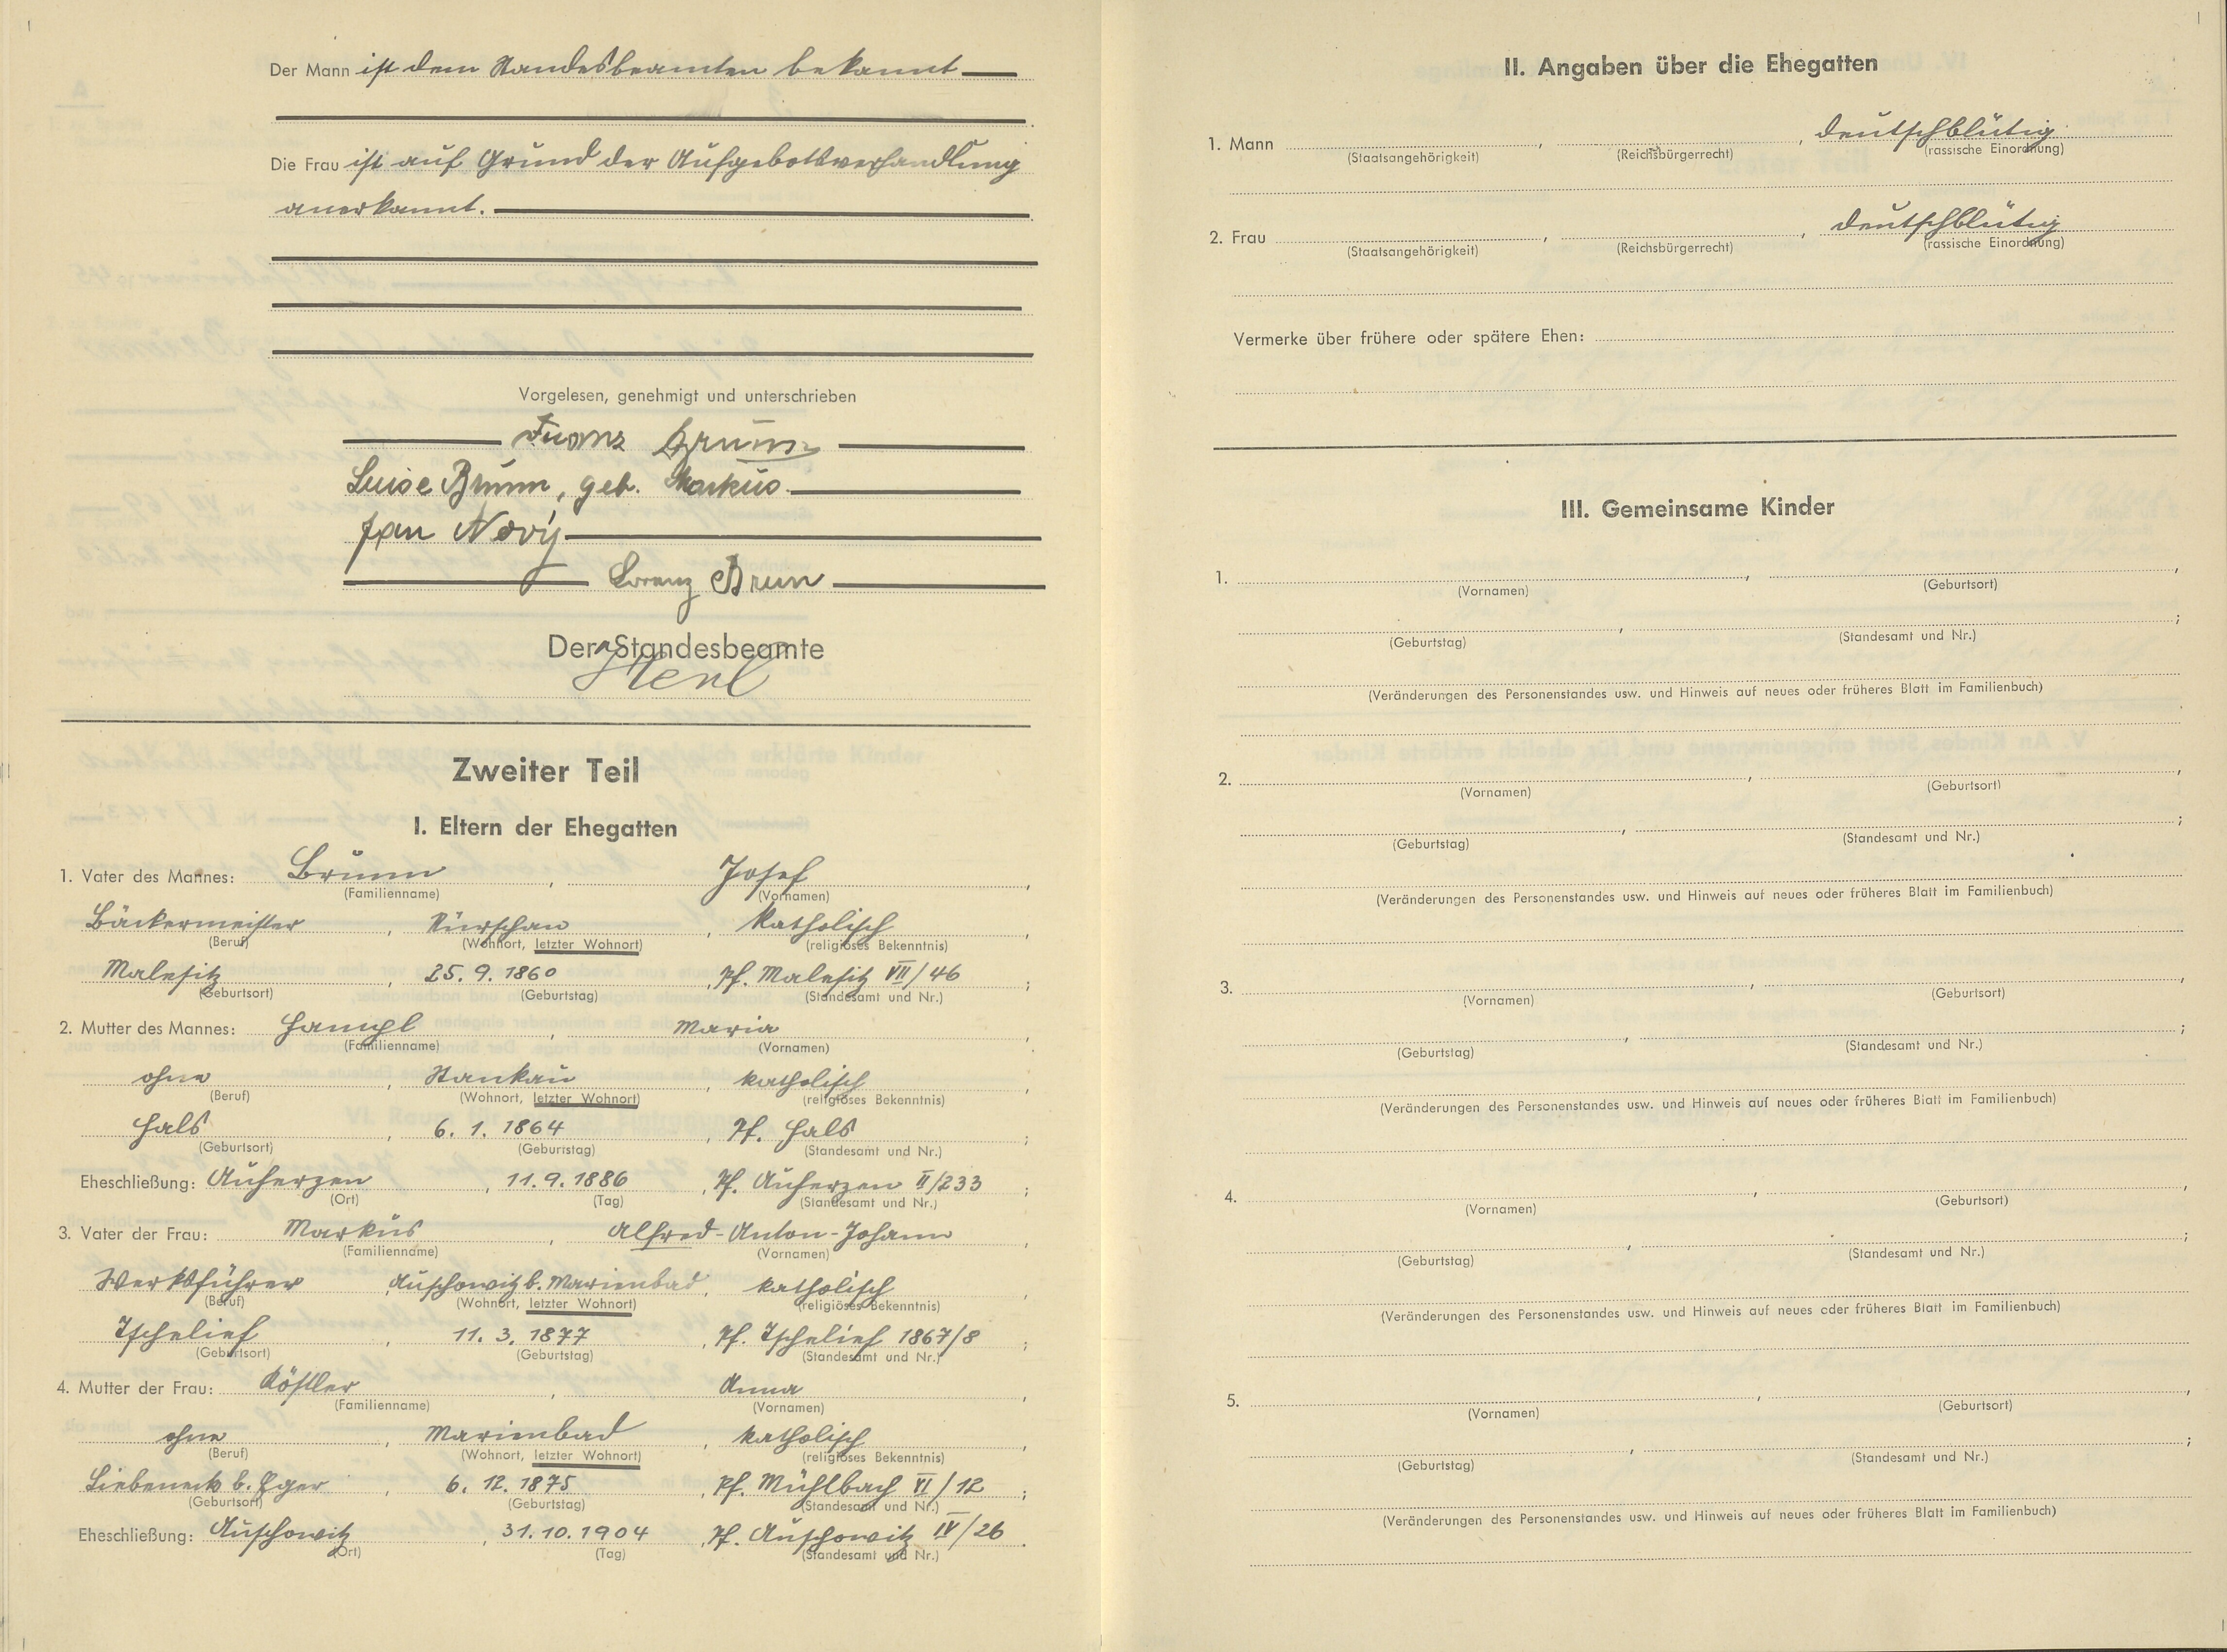 Der Mann ist dem Standesbeamten bekannt
Die Frau ist auf Grund der Aufgebotsverhandlung
anerkannt.
Vorgelesen, genehmigt und unterschrieben
Franz Brunn
Luise Brunn, geb. Markus
Jan Nový
Lorenz Brun
Der Standesbeamte
Zweiter Teil
I. Eltern der Ehegatten
1. Vater des Mannes: Brunn, Josef
(Familienname) (Vornamen)
Bäckermeister, Nürschan, katholisch,
(Beruf) (Wohnort, letzter Wohnort) (religiöses Bekenntnis)
Malesitz, 25.9.1860, Pf. Malesitz VII/46;
(Geburtsort) (Geburtstag) (Standesamt und Nr.)
2. Mutter des Mannes: Hampl, Maria,
(Familienname) (Vornamen)
ohne, Stankau, katholisch,
(Beruf) (Wohnort, letzter Wohnort) (religiöses Bekenntnis)
Hals, 6.1.1864, Pf. Hals;
(Geburtsort) (Geburtstag) (Standesamt und Nr.)
Eheschließung: Auherzen, 11.9.1886, Pf. Auherzen II/233;
(Ort) (Tag) (Standesamt und Nr.)
3. Vater der Frau: Markus, Alfred-Anton-Johann,
(Familienname) (Vornamen)
Werksführer, Auschowitz b. Marienbad, katholisch,
(Beruf) (Wohnort, letzter Wohnort) (religiöses Bekenntnis)
Tschelief, 11.3.1877, Pf. Tschelief 1867/8;
(Geburtsort) (Geburtstag) (Standesamt und Nr.)
4. Mutter der Frau: Köstler, Anna,
(Familienname) (Vornamen)
ohne, Marienbad, katholisch,
(Beruf) (Wohnort, letzter Wohnort) (religiöses Bekenntnis)
Liebeneck b. Eger, 6.12.1875, Pf. Mühlbach VI/12;
(Geburtsort) (Geburtstag) (Standesamt und Nr.)
Eheschließung: Auschowitz, 31.10.1904, Pf. Auschowitz IV/26.
(Ort) (Tag) (Standesamt und Nr.)
II. Angaben über die Ehegatten
1. Mann , , deutschblütig
(Staatsangehörigkeit) (Reichsbürgerrecht) (rassische Einordnung)
2. Frau , , deutschblütig
(Staatsangehörigkeit) (Reichsbürgerrecht) (rassische Einordnung)
Vermerke über frühere oder spätere Ehen:
III. Gemeinsame Kinder
1. , ,
(Vornamen) (Geburtsort)
, ;
(Geburtstag) (Standesamt und Nr.)
(Veränderungen des Personenstandes usw. und Hinweis auf neues oder früheres Blatt im Familienbuch)
2. , ,
(Vornamen) (Geburtsort)
, ;
(Geburtstag) (Standesamt und Nr.)
(Veränderungen des Personenstandes usw. und Hinweis auf neues oder früheres Blatt im Familienbuch)
3. , ,
(Vornamen) (Geburtsort)
, ;
(Geburtstag) (Standesamt und Nr.)
(Veränderungen des Personenstandes usw. und Hinweis auf neues oder früheres Blatt im Familienbuch)
4. , ,
(Vornamen) (Geburtsort)
, ;
(Geburtstag) (Standesamt und Nr.)
(Veränderungen des Personenstandes usw. und Hinweis auf neues oder früheres Blatt im Familienbuch)
5. , ,
(Vornamen) (Geburtsort)
, ;
(Geburtstag) (Standesamt und Nr.)
(Veränderungen des Personenstandes usw. und Hinweis auf neues oder früheres Blatt im Familienbuch)